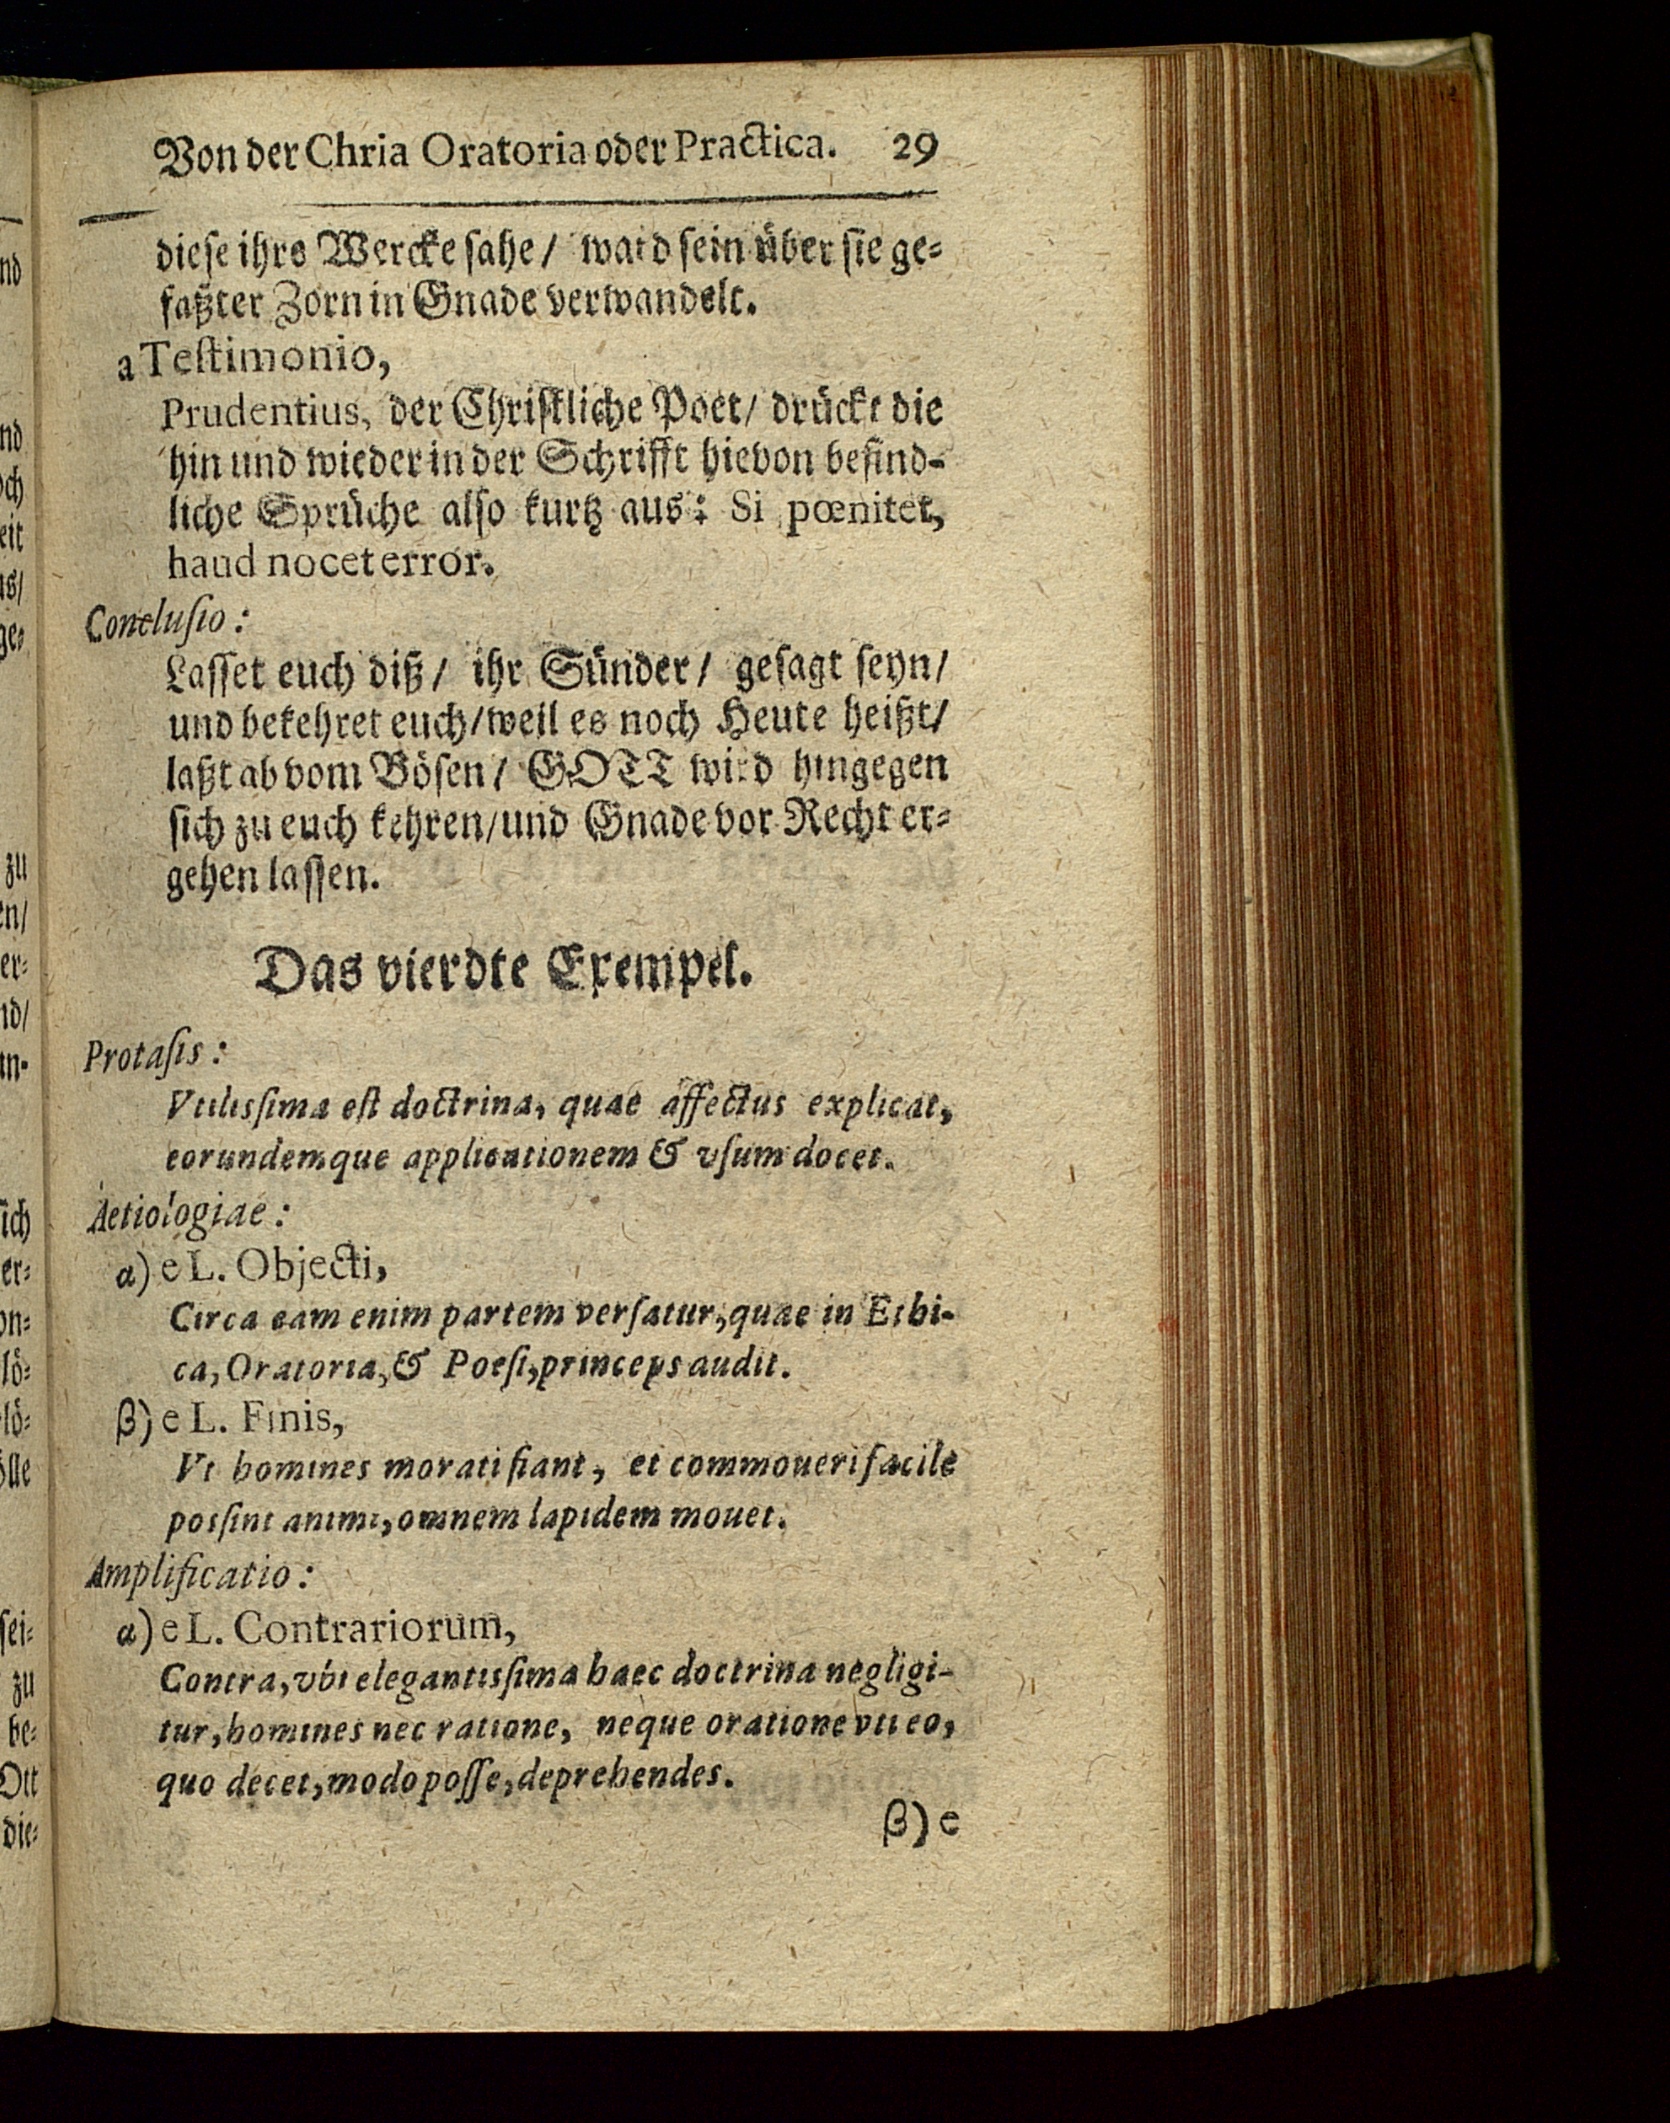 Von der Chria Oratoria oder Practica. 29
diese ihre Wercke sahe / ward sein über sie ge-
faßter Zorn in Gnade verwandelt.
a Testimonio,
Prudentius, der Christliche Poet / drückt die
hin und wieder in der Schrifft hievon befind-
liche Sprüche also kurtz aus: Si pœnitet,
haud nocet error.
Conclusio:
Lasset euch diß / ihr Sünder / gesagt seyn /
und bekehret euch / weil es noch Heute heißt /
laßt ab vom Bösen / GOTT wird hingegen
sich zu euch kehren / und Gnade vor Recht er-
gehen lassen.
Das vierdte Exempel.
Protasis:
Vtilissima est doctrina, quae affectus explicat,
eorundemque applicationem & vsum docet.
Aetiologiae:
α) e L. Objecti,
Circa eam enim partem versatur, quae in Ethi-
ca, Oratoria, & Poesi, princeps audit.
β) e L. Finis,
Vt homines morati fiant, et commoueri facile
possint animi, omnem lapidem mouet.
Amplificatio:
α) e L. Contrariorum,
Contra, vbi elegantissima haec doctrina negligi-
tur, homines nec ratione, neque oratione vti eo,
quo decet, modo posse, deprehendes.
β) e